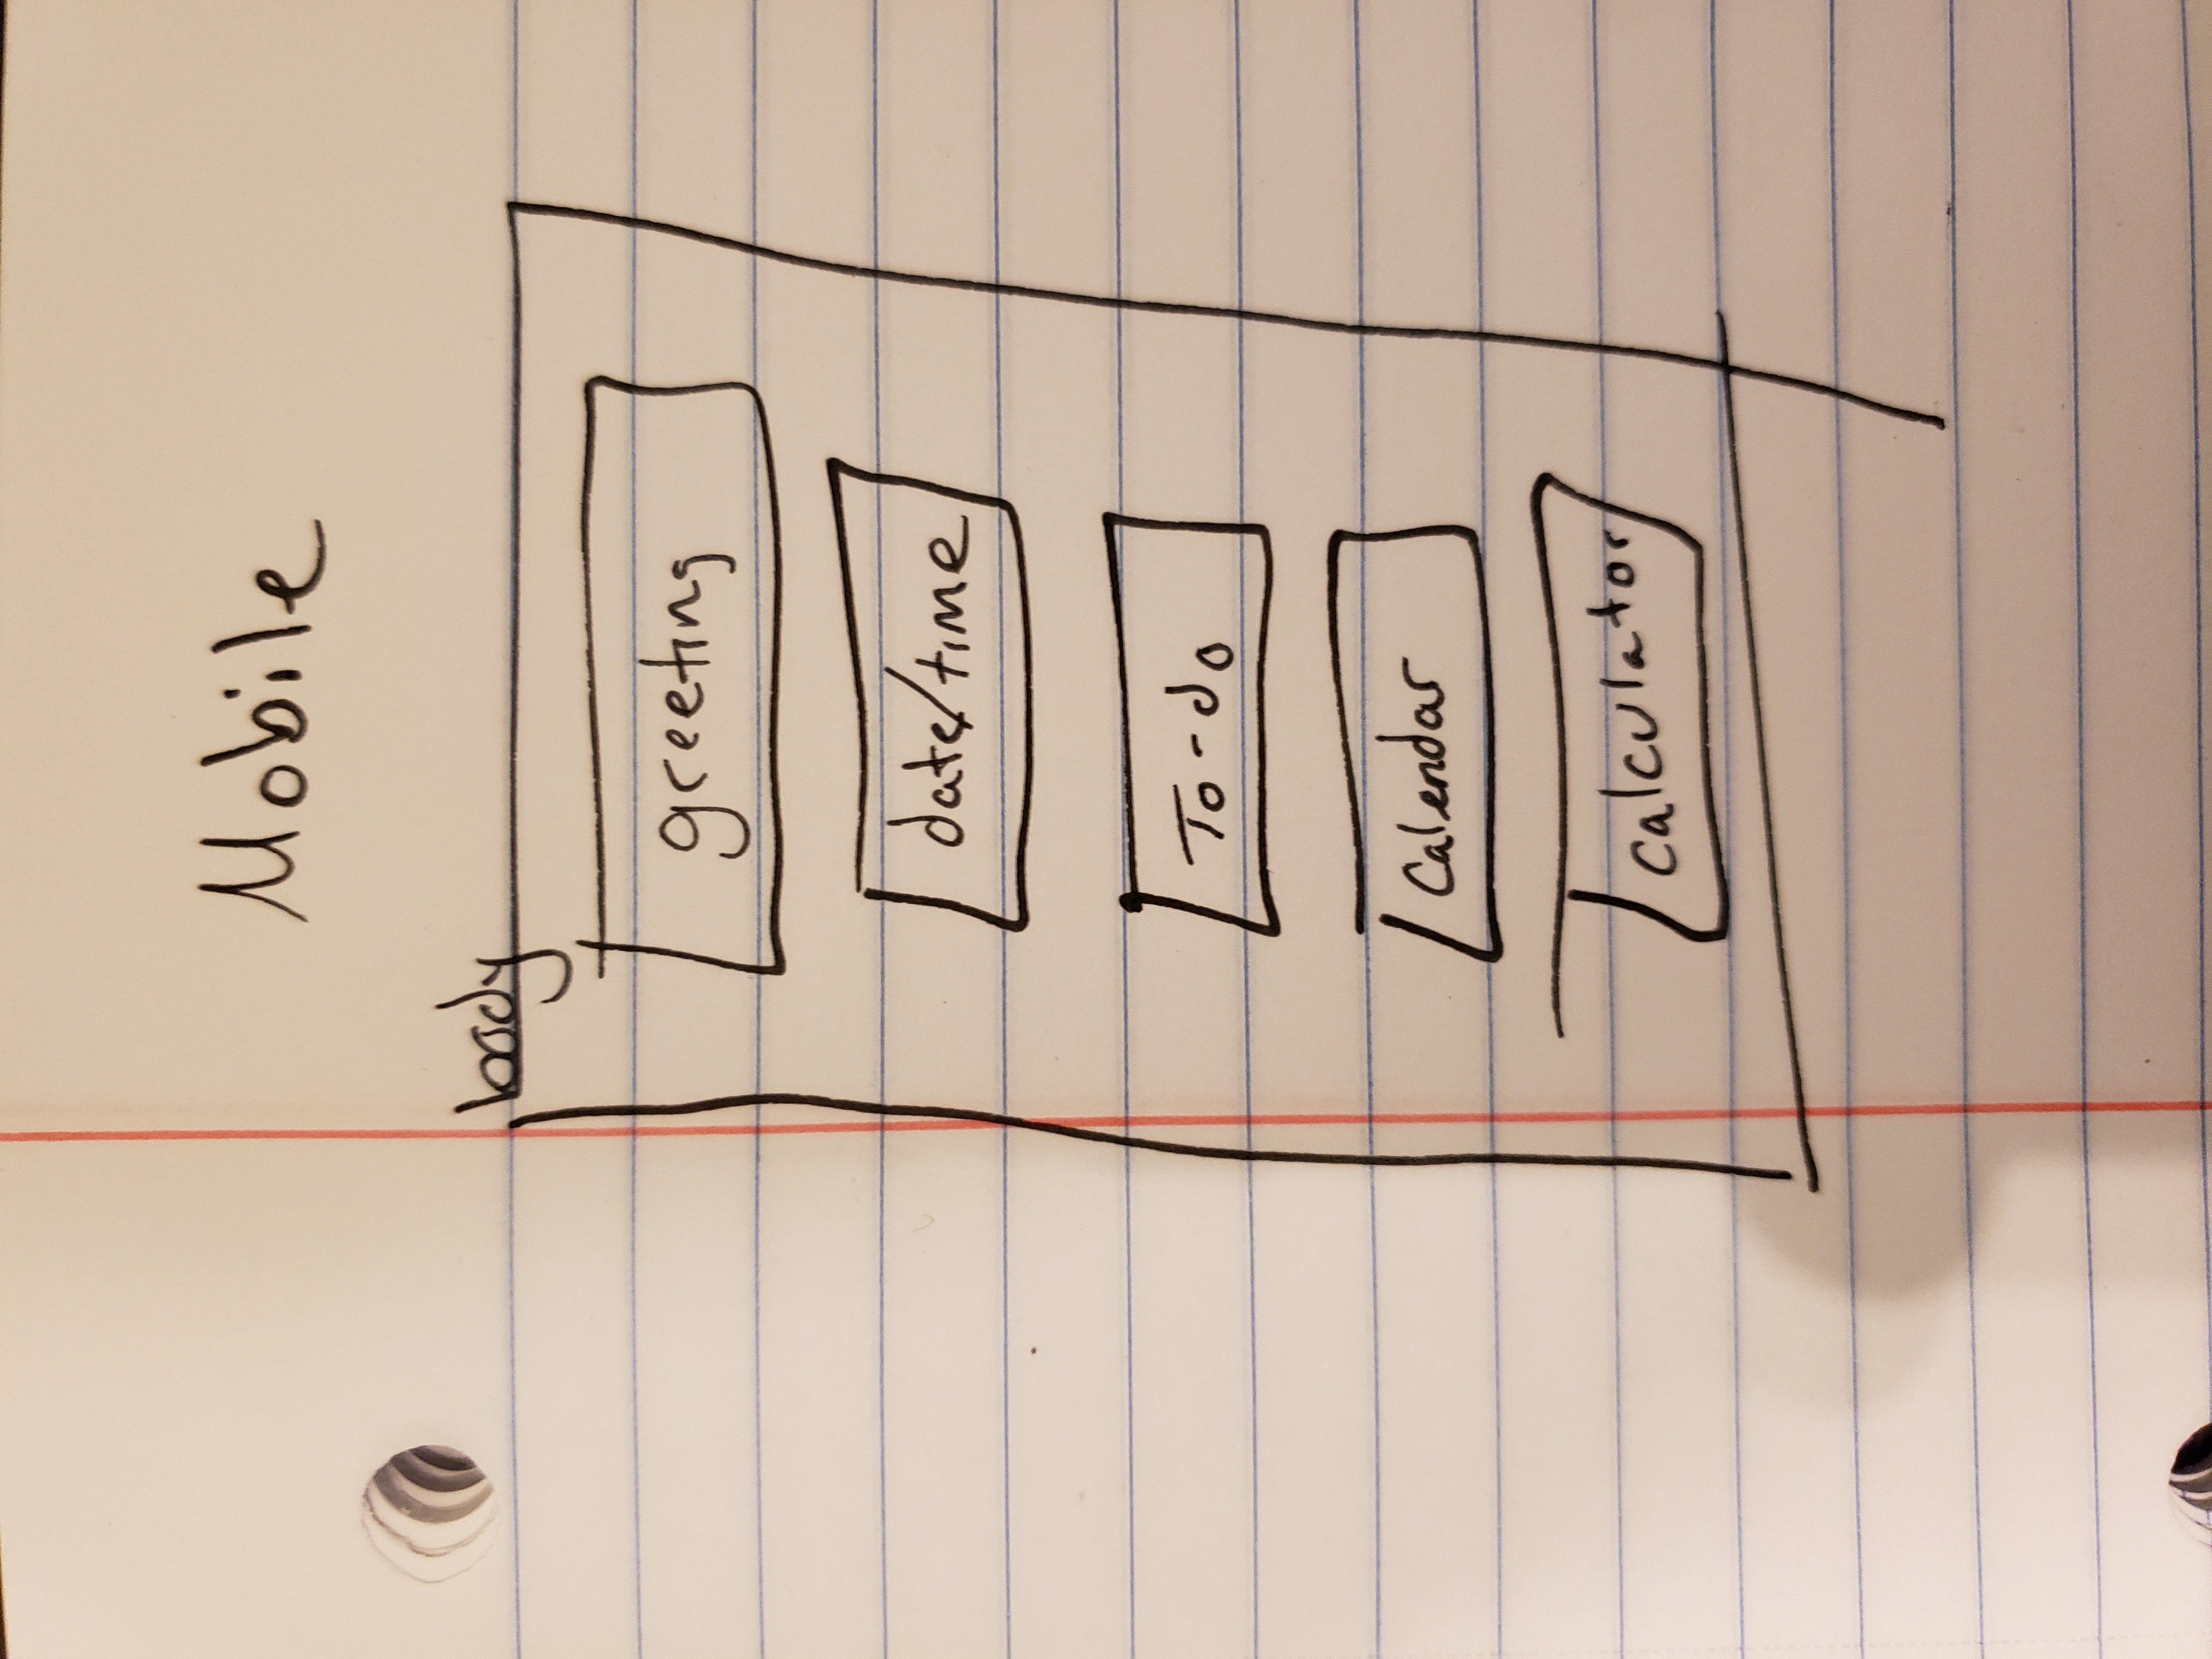 Mobile
body
greeting
date/time
To-do
Calendar
Calculator